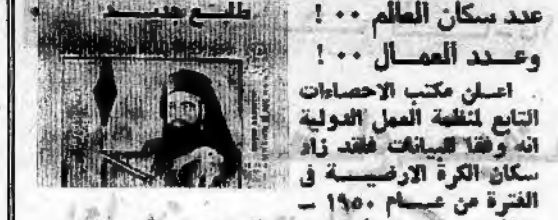 عدد سكان العالم ٠٠ !
وعـــدد العمـــال ٠٠ !
اعلن مكتب الاحصاءات
التابع لمنظمة العمل الدولية
انه وفقا للبيانات فقد زاد
سكان الكرة الارضيـــة في
الفترة من عـــام ١٩٥٠ ــ
طابـــع جديـــد